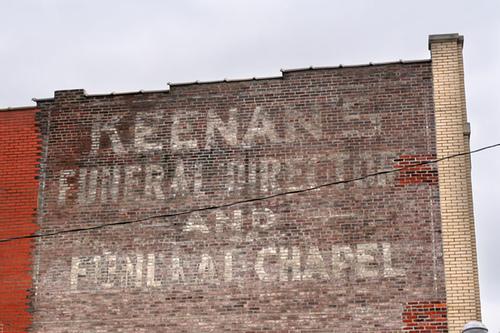 KEENAN'S
FUNERAL DIRECTOR
AND
FUNERAL CHAPEL